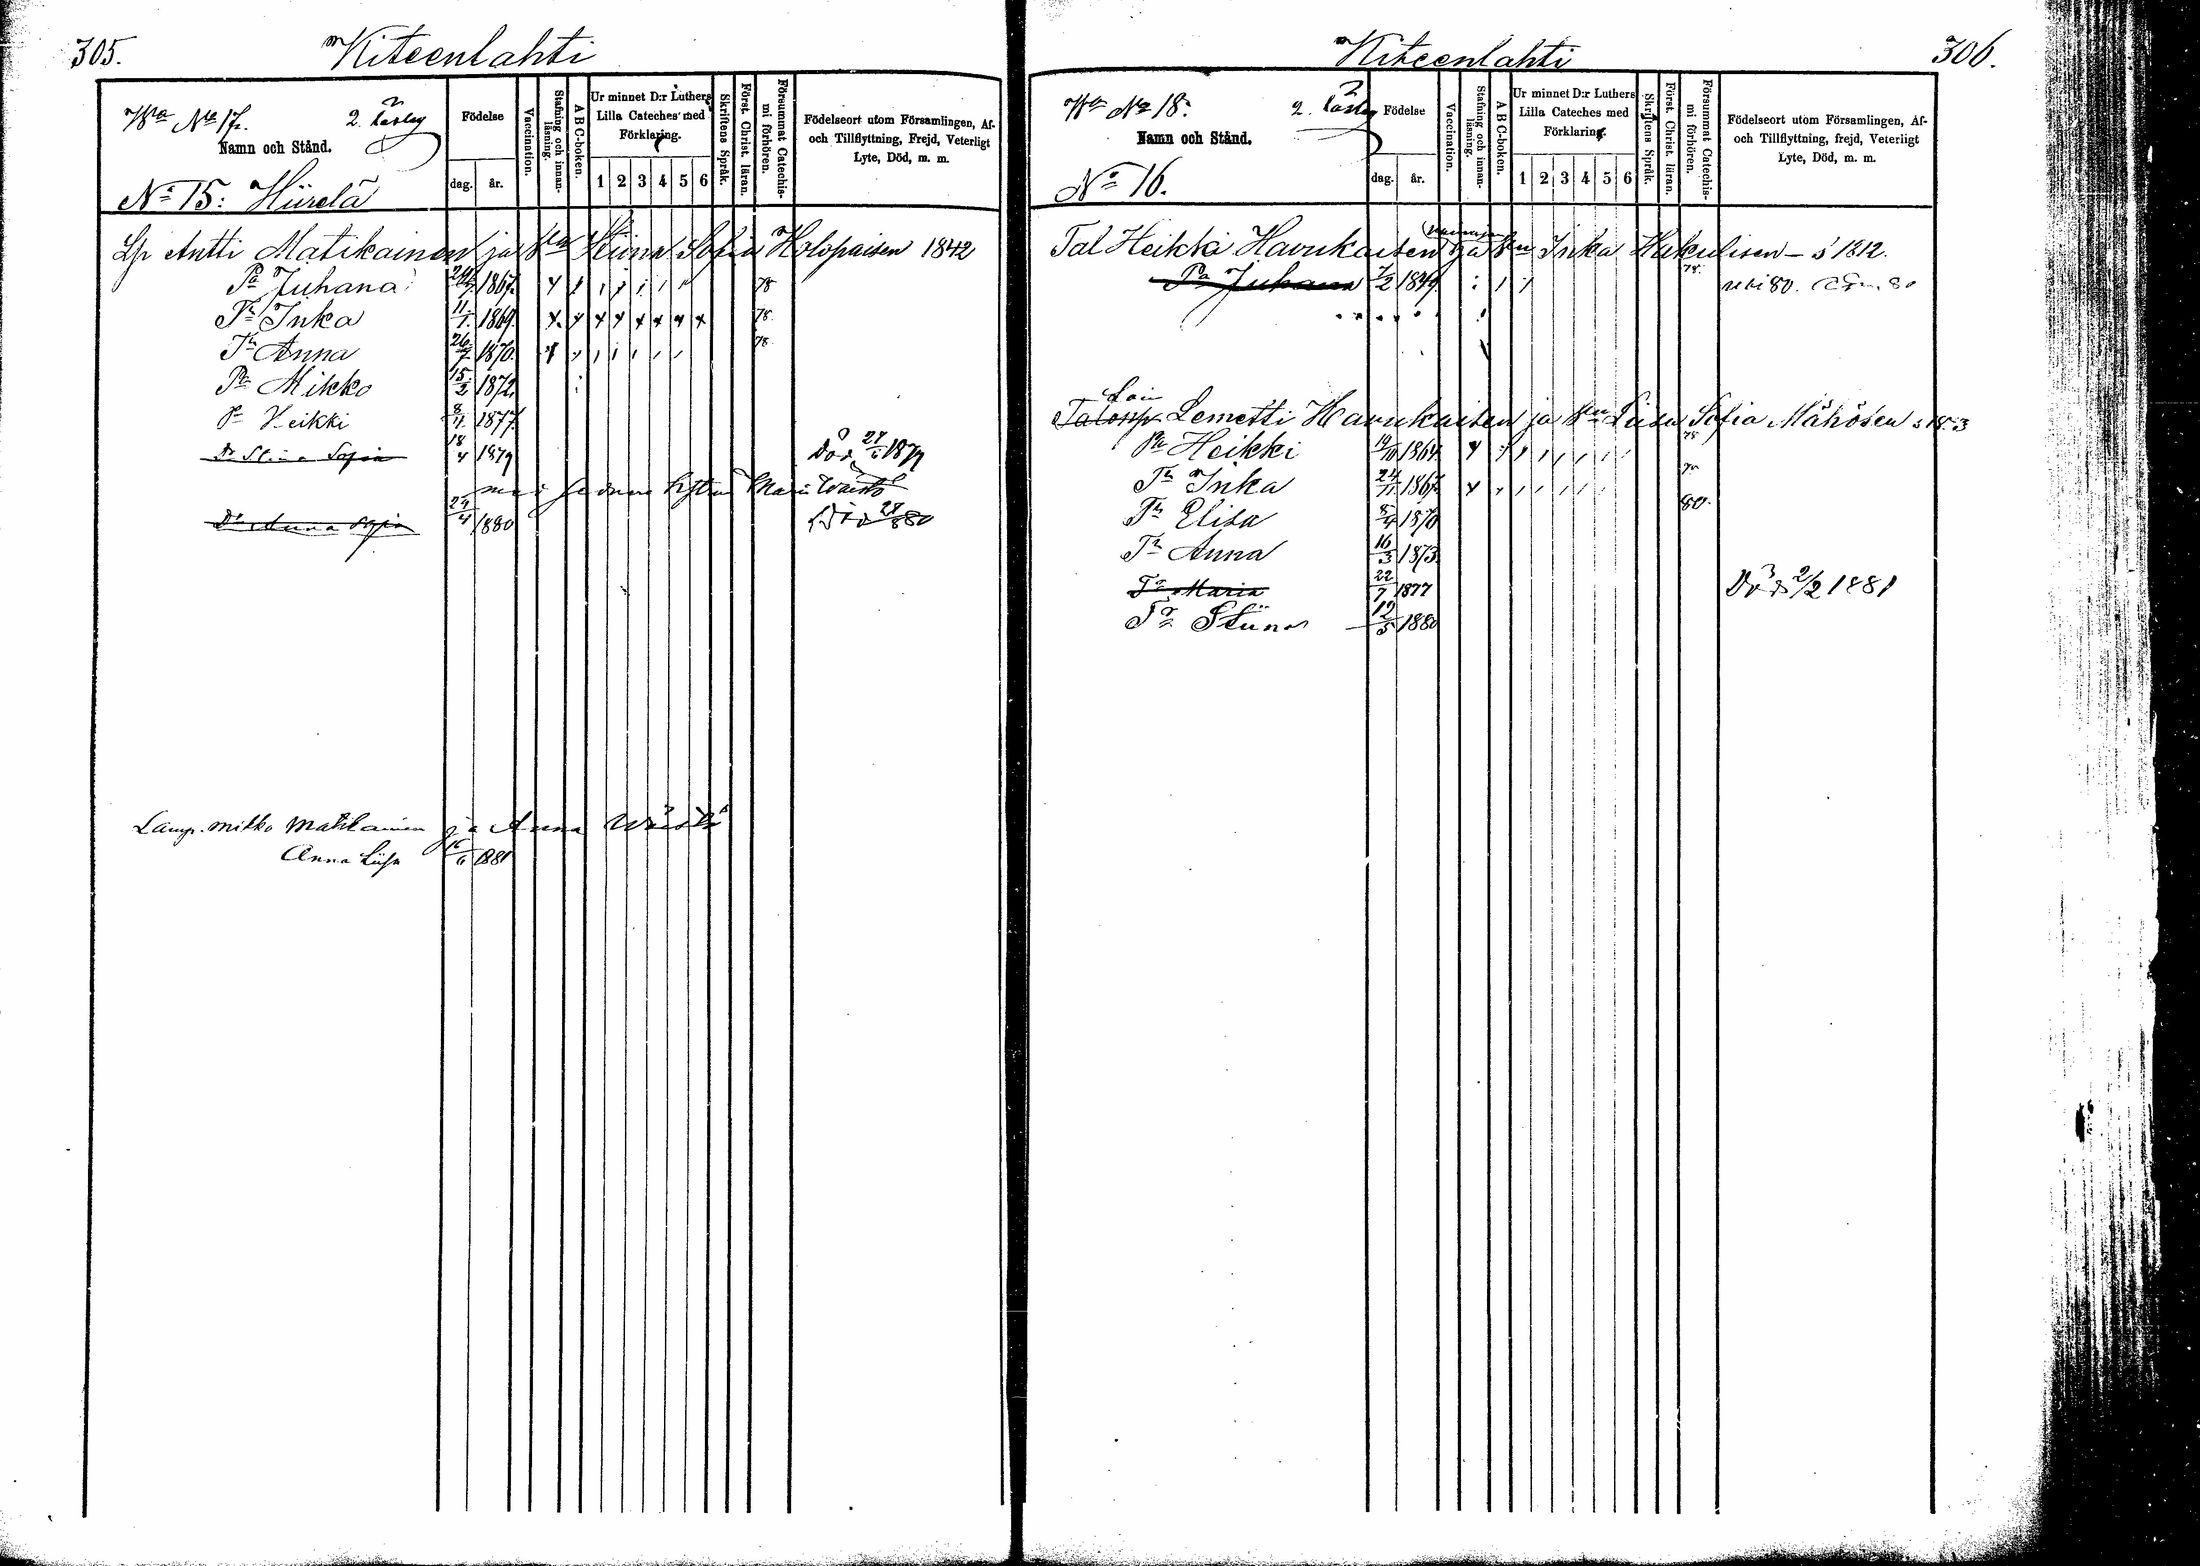 305.
Kiteenlahti
Wra No 17.
2. Kasleg
Namn och Stånd.
Födelse
dag. år.
Vaccination.
Stafning och innan-läsning.
A B C-boken.
Ur minnet D:r Luthers Lilla Cateches med Förklaring.
1 2 3 4 5 6
Skriftens Språk.
Först. Christ. läran.
Försummat Catechis-mi förhören.
Födelseort utom Församlingen, Af- och Tillflyttning, Frejd, Veterligt Lyte, Död, m. m.
No 15: Hiirelä
Lp Antti Matikainen ja Stiina Sofia Holopaisen 1842
Pa Juhana 1867. 78
Tr Inka 11/1. 1869. 78.
Tr Anna 26/7 1870. 78.
Pa Mikko 15/2 1872.
Pa Heikki 1877.
Dr Stina Sofia 18/4 1879 Död 1879
med Maria
Dr Anna Sofia 1880 Död 28/8 80
Lamp. Mikko Matikainen ja Anna Wäistö
Anna Liisa 1881
Kiteenlahti
306.
Wra No 18:
Namn och Stånd.
Födelse
dag. år.
Vaccination.
Stafning och innan-läsning.
A B C-boken.
Ur minnet D:r Luthers Lilla Cateches med Förklaring.
1 2 3 4 5 6
Skriftens Språk.
Först. Christ. läran.
Försummat Catechis-mi förhören.
Födelseort utom Församlingen, Af- och Tillflyttning, frejd, Veterligt Lyte, Död, m. m.
No 16.
Tal Heikki Havukaisen ja Inka Hakulisen - s 1812.
Pa Juhana 7/2 1849. 78.
Lemetti Havukaisen ja Liisa Sofia Mähösen
Pa Heikki 1864. 78
Tr Inka 24/11 1867.
Tr Elisa 8/4 1870 80.
Tr Anna 16/3 1873.
Tr Maria 22/7 1877 Död 2/2 1881
Tr Stiina 12/5 1880